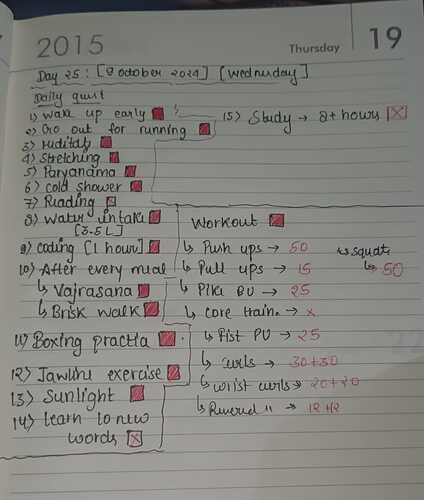 2015
Thursday 19
Day 25 : [9 October 2024] [Wednesday]
Daily quest
1) wake up early
2) Go out for running
3) Meditate
4) Stretching
5) Paryanama
6) cold shower
7) Reading
8) water intake
[3-5 L]
9) coding [1 hour]
10) After every meal
↳ Vajrasana
↳ Brisk walk
11) Boxing practice
12) Jawline exercise
13) Sunlight
14) learn to new
words
15) Study → 8+ hours
Workout
↳ Push ups → 50
↳ squats
↳ 50
↳ Pull ups → 15
↳ Pike PU → 25
↳ core train. → x
↳ fist PU → 25
↳ curls → 30+30
↳ wrist curls → 20+20
↳ Reversed " → 12+12